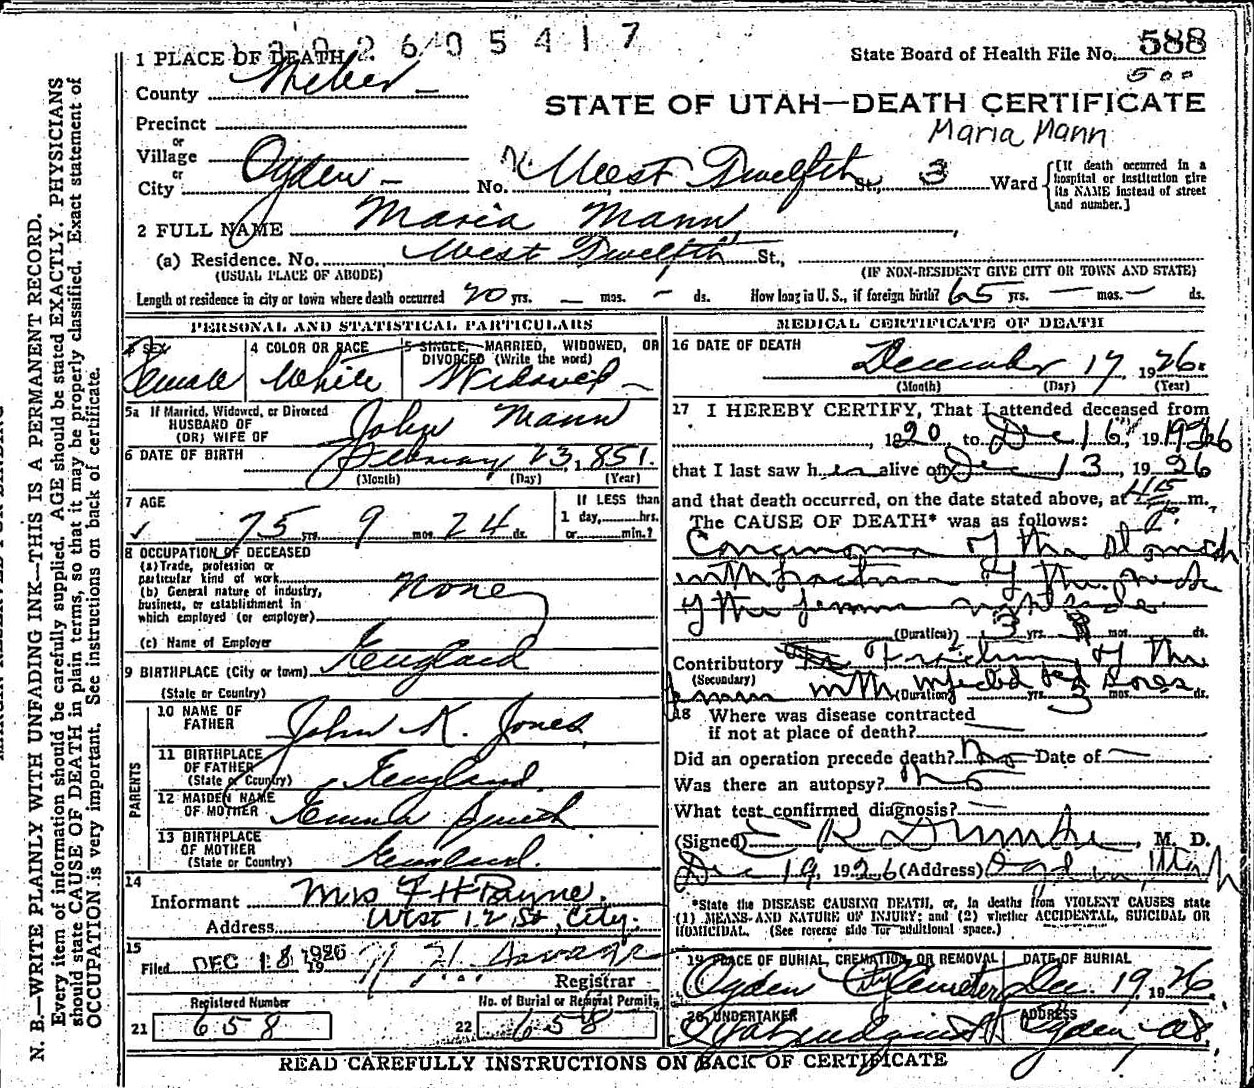 1926005417
State Board of Health File No. 588
500
1 PLACE OF DEATH
County Weber
STATE OF UTAH—DEATH CERTIFICATE
Maria Mann
Precinct
or
Village
or
City Ogden No. West Twelfth St., 3 Ward {[If death occurred in a hospital or institution give its NAME instead of street and number.]
2 FULL NAME Maria Mann
(a) Residence. No. West Twelfth St.,
(USUAL PLACE OF ABODE) (IF NON-RESIDENT GIVE CITY OR TOWN AND STATE)
Length of residence in city or town where death occurred 70 yrs. — mos. - ds. How long in U. S., if foreign birth? 65 yrs. — mos. — ds.
PERSONAL AND STATISTICAL PARTICULARS
3 SEX
Female
4 COLOR OR RACE
White
5 SINGLE, MARRIED, WIDOWED, OR
DIVORCED (Write the word)
Widowed
5a If Married, Widowed, or Divorced
HUSBAND OF
(OR) WIFE OF John Mann
6 DATE OF BIRTH February 23, 1851.
(Month) (Day) (Year)
7 AGE
75 yrs. 9 mos. 24 ds.
If LESS than
1 day,......hrs.
or......min.?
8 OCCUPATION OF DECEASED
(a) Trade, profession or
particular kind of work
(b) General nature of industry,
business, or establishment in
which employed (or employer)
None
(c) Name of Employer
9 BIRTHPLACE (City or town) England
(State or Country)
PARENTS
10 NAME OF
FATHER John K. Jones
11 BIRTHPLACE
OF FATHER
(State or Country) England
12 MAIDEN NAME
OF MOTHER Smith
13 BIRTHPLACE
OF MOTHER
(State or Country) England.
14
Informant Mrs F H Payne.
Address West 12 St, City.
15
Filed DEC 18 1926 19 Savage
Registrar
Registered Number
21 658
No. of Burial or Removal Permit
22 658
MEDICAL CERTIFICATE OF DEATH
16 DATE OF DEATH
December 17 1926.
(Month) (Day) (Year)
17 I HEREBY CERTIFY, That I attended deceased from
, 1920 to Dec 16, 1926
that I last saw her alive on Dec 13, 1926
and that death occurred, on the date stated above, at m.
The CAUSE OF DEATH* was as follows:
Carcinoma of the stomach
with fracture of the neck
of the femur right side
(Duration) 3 yrs. mos. ds.
Contributory Fracture of the
(Secondary)
femur with infected bed sores
(Duration) yrs. 3 mos. ds.
18 Where was disease contracted
if not at place of death? —
Did an operation precede death? no Date of —
Was there an autopsy? no
What test confirmed diagnosis? —
(Signed) E R Dumke, M. D.
Dec 19, 1926 (Address) Ogden, Utah
*State the DISEASE CAUSING DEATH, or, in deaths from VIOLENT CAUSES state
(1) MEANS AND NATURE OF INJURY; and (2) whether ACCIDENTAL, SUICIDAL OR
HOMICIDAL. (See reverse side for additional space.)
19 PLACE OF BURIAL, CREMATION, OR REMOVAL
Ogden City Cemetery
DATE OF BURIAL
Dec. 19, 1926.
20 UNDERTAKER
ADDRESS
Ogden
READ CAREFULLY INSTRUCTIONS ON BACK OF CERTIFICATE
N. B.—WRITE PLAINLY WITH UNFADING INK—THIS IS A PERMANENT RECORD.
Every item of information should be carefully supplied. AGE should be stated EXACTLY. PHYSICIANS
should state CAUSE OF DEATH in plain terms, so that it may be properly classified. Exact statement of
OCCUPATION is very important. See instructions on back of certificate.